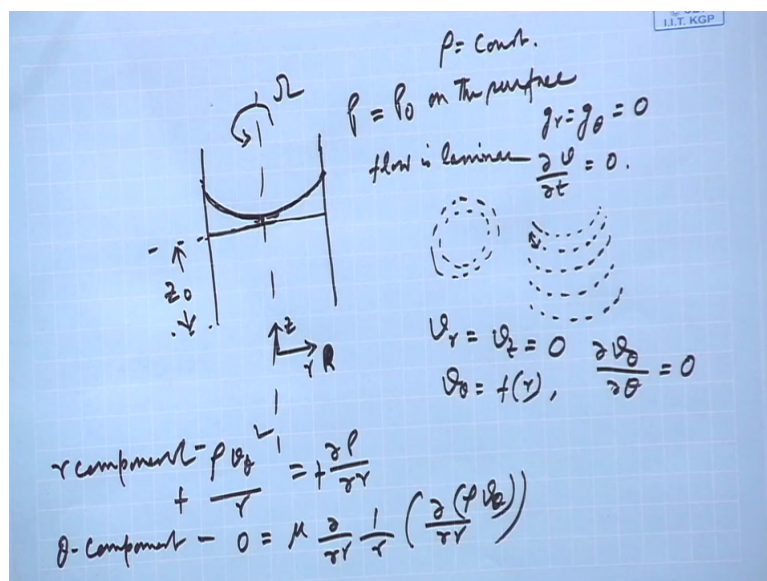 I.I.T. KGP
ρ = Const.
Ω
p = p₀ on the surface
g_r = g_θ = 0
flow is laminar ∂v/∂t = 0.
z₀
z
r R
v_r = v_z = 0 ∂v_θ/∂θ = 0
v_θ = f(r),
r component - + ρ v_θ²/r = + ∂p/∂r
θ-component - 0 = μ ∂/∂r 1/r (∂(r v_θ)/∂r)